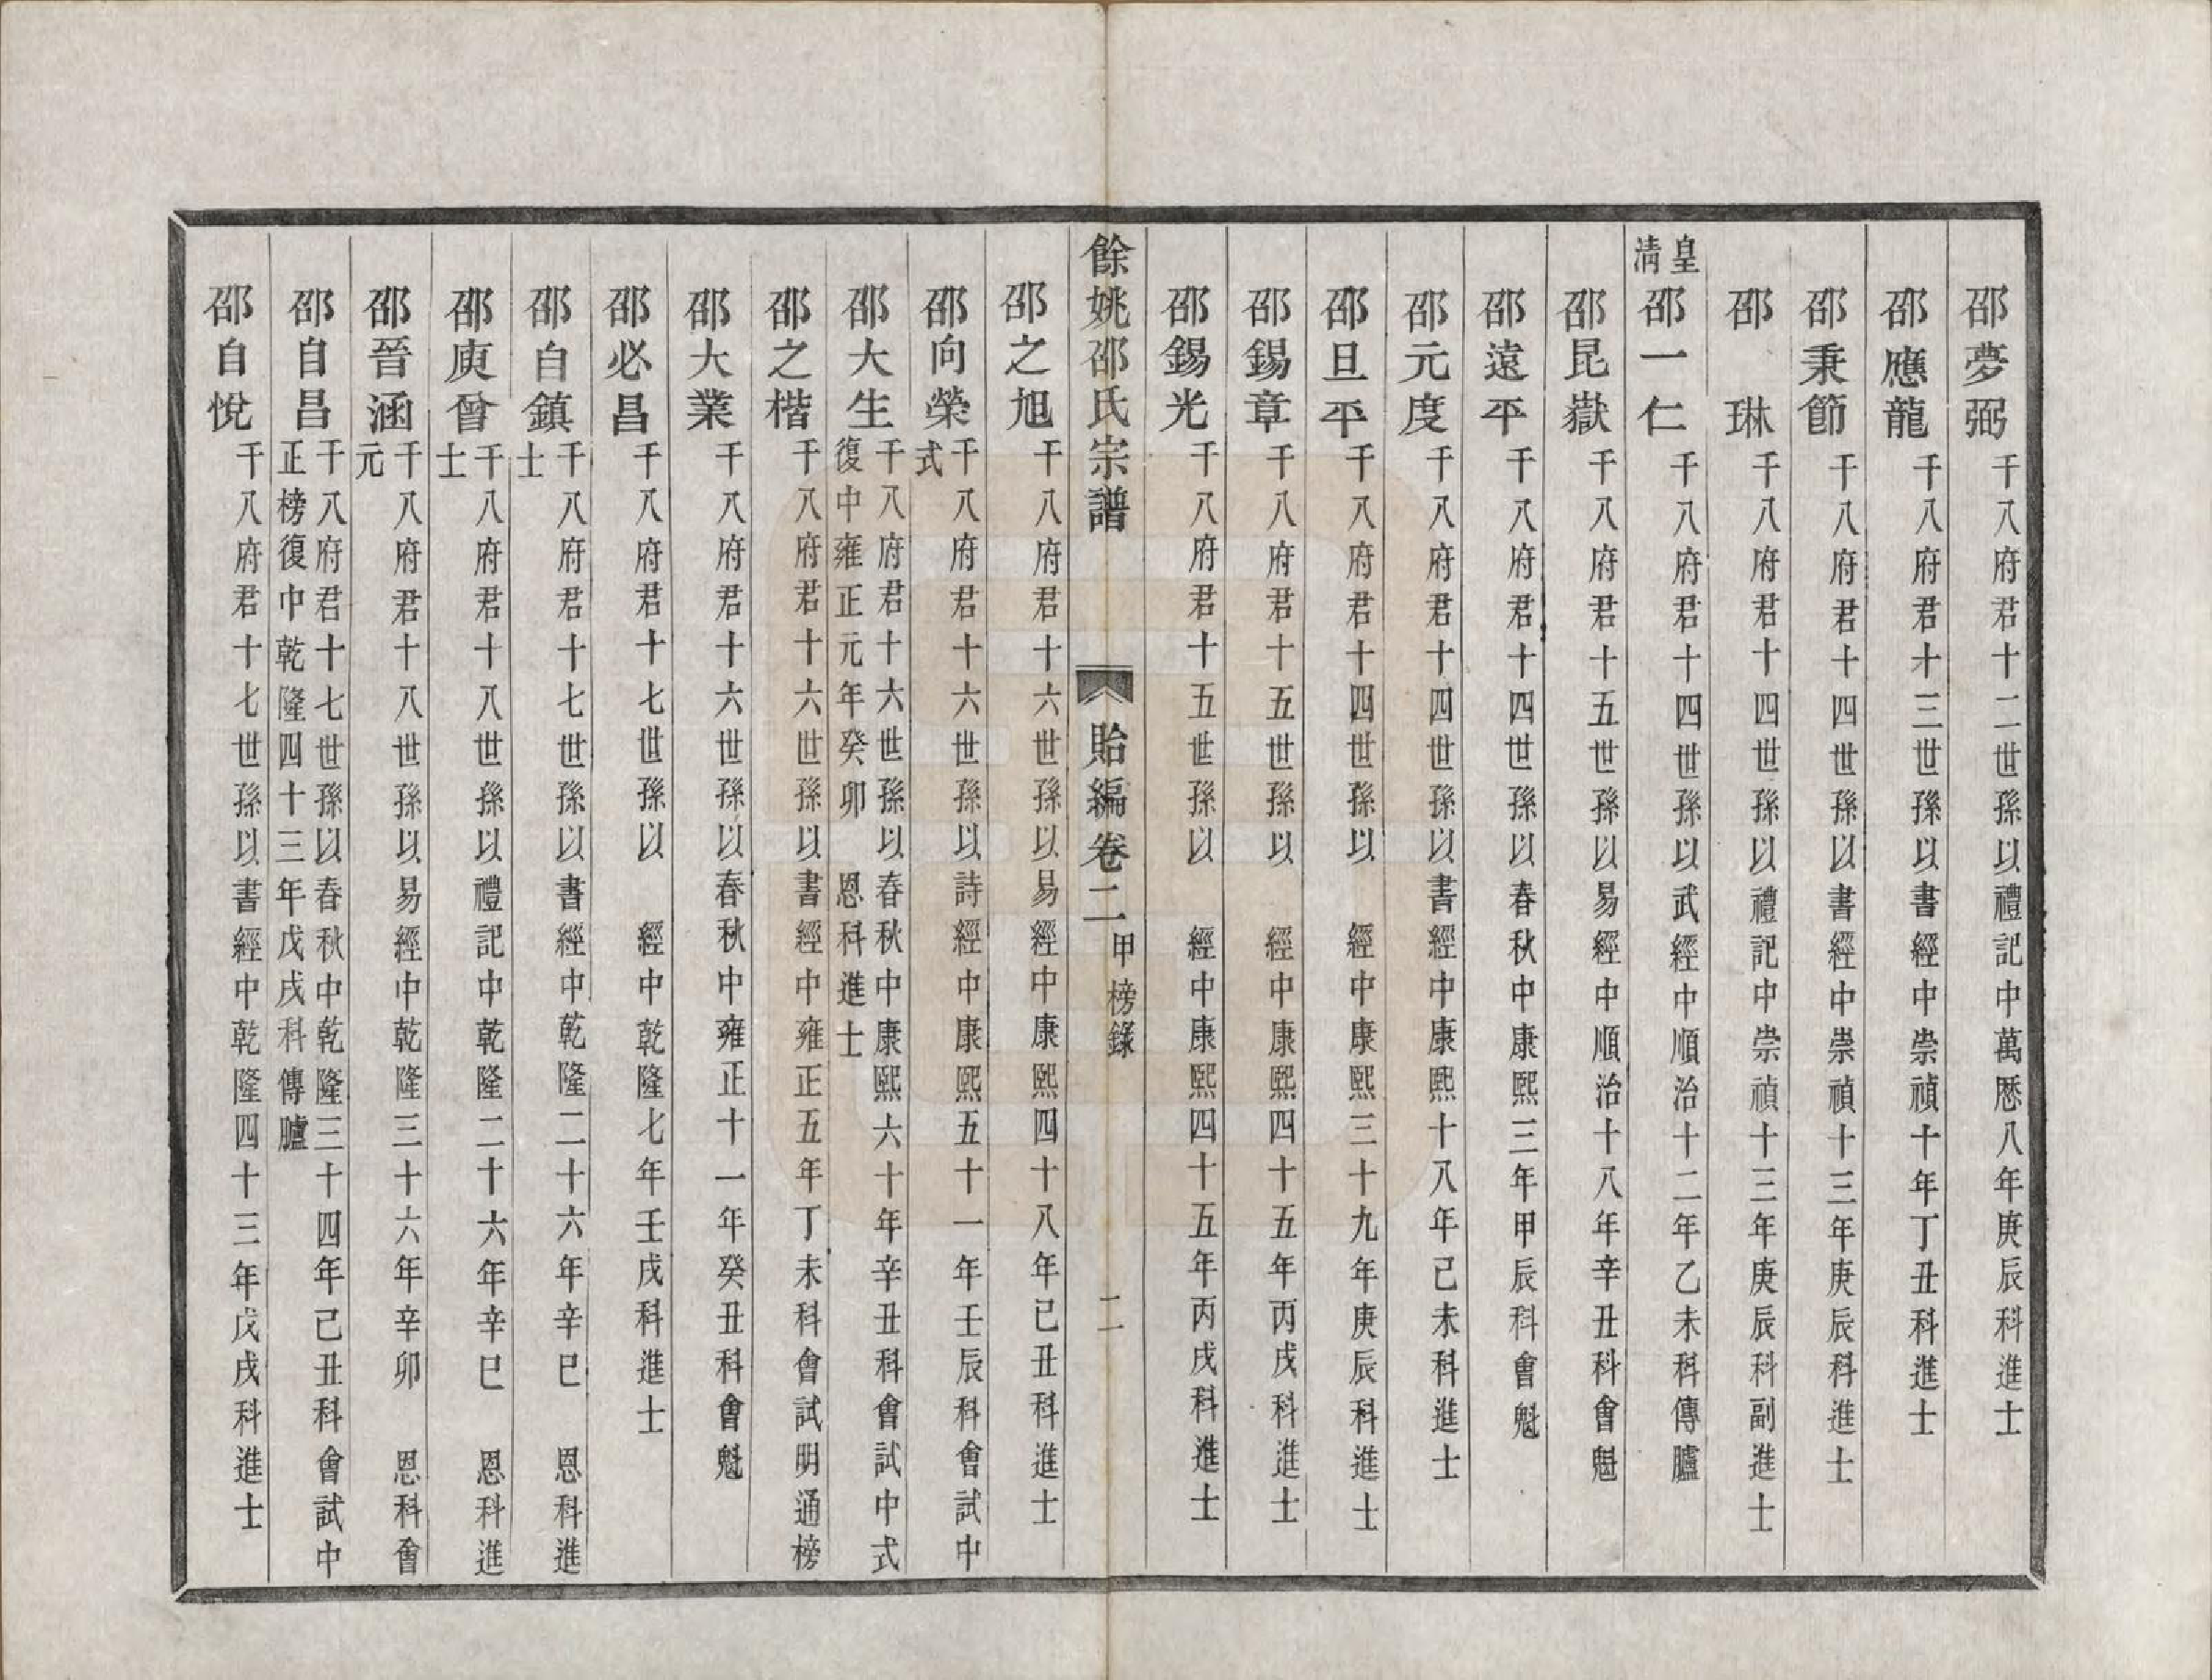 邵夢弼 千八府君十二世孫以禮記中萬厯八年庚辰科進士
邵應龍 千八府君十三世孫以書經中崇禎十年丁丑科進士
邵秉節 千八府君十四世孫以書經中崇禎十三年庚辰科進士
邵琳 千八府君十四世孫以禮記中崇禎十三年庚辰科副進士
皇清
邵一仁 千八府君十四世孫以武經中順治十二年乙未科傳臚
邵昆嶽 千八府君十五世孫以易經中順治十八年辛丑科會魁
邵遠平 千八府君十四世孫以春秋中康熙三年甲辰科會魁
邵元度 千八府君十四世孫以書經中康熙十八年己未科進士
邵旦平 千八府君十四世孫以 經中康熙三十九年庚辰科進士
邵錫章 千八府君十五世孫以 經中康熙四十五年丙戌科進士
邵錫光 千八府君十五世孫以 經中康熙四十五年丙戌科進士
餘姚邵氏宗譜 貽編卷二 甲榜錄 二
邵之旭 千八府君十六世孫以易經中康熙四十八年己丑科進士
邵向榮 千八府君十六世孫以詩經中康熙五十一年壬辰科會試中
式
邵大生 千八府君十六世孫以春秋中康熙六十年辛丑科會試中式
復中雍正元年癸卯 恩科進士
邵之楷 千八府君十六世孫以書經中雍正五年丁未科會試明通榜
邵大業 千八府君十六世孫以春秋中雍正十一年癸丑科會魁
邵必昌 千八府君十七世孫以 經中乾隆七年壬戌科進士
邵自鎮 千八府君十七世孫以書經中乾隆二十六年辛巳 恩科進
士
邵庾曾 千八府君十八世孫以禮記中乾隆二十六年辛巳 恩科進
士
邵晉涵 千八府君十八世孫以易經中乾隆三十六年辛卯 恩科會
元
邵自昌 千八府君十七世孫以春秋中乾隆三十四年己丑科會試中
正榜復中乾隆四十三年戊戌科傳臚
邵自悅 千八府君十七世孫以書經中乾隆四十三年戊戌科進士